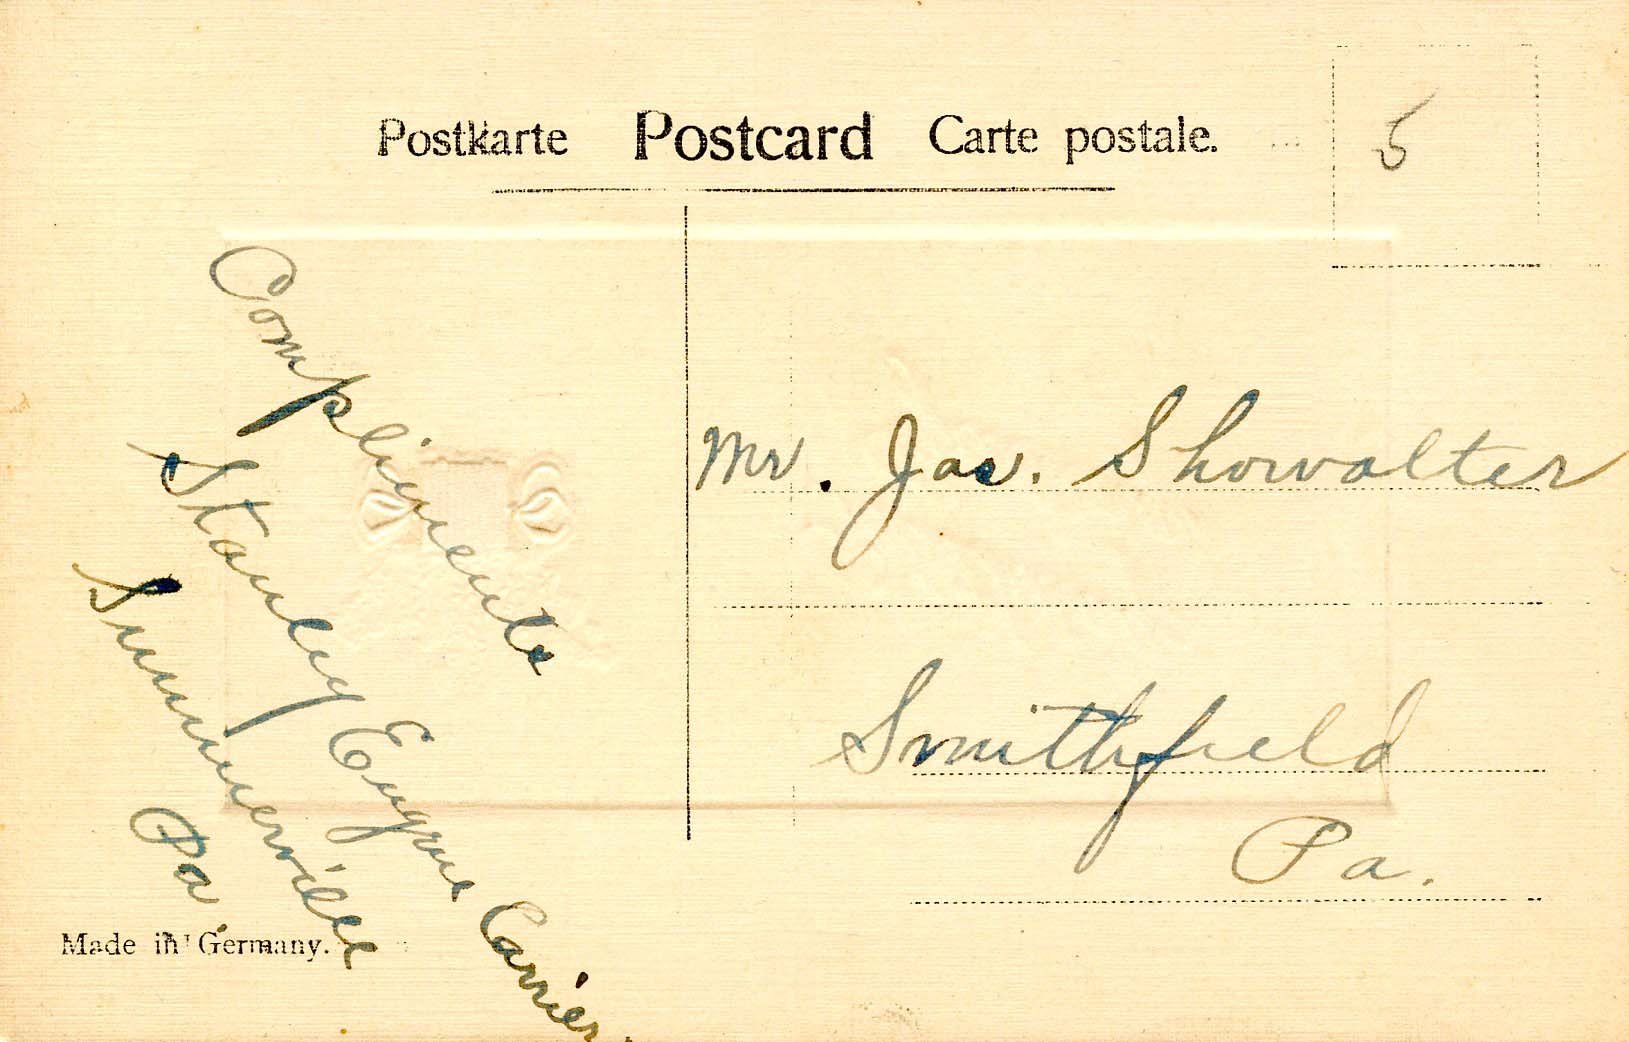 Postkarte Postcard Carte postale.
5
Compliments
Stanley Eugene Carrier.
Summerville
Pa.
Mr. Jas. Showalter
Smithfield
Pa.
Made in Germany.